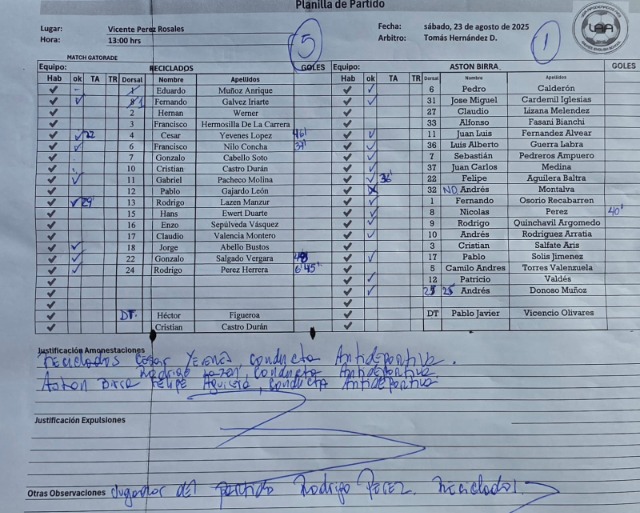 Planilla de Partido
Lugar: Vicente Perez Rosales Fecha: sábado, 23 de agosto de 2025
Hora: 13:00 hrs 5 Arbitro: Tomás Hernández D. 1
MATCH GATORADE
Equipo: RECICLADOS GOLES Equipo: ASTON BIRRA GOLES
Hab ok TA TR Dorsal Nombre Apellidos Hab ok TA TR Dorsal Nombre Apellidos
Eduardo Muñoz Anrique 6 Pedro Calderón
1 Fernando Galvez Iriarte 31 Jose Miguel Cardemil Iglesias
2 Hernan Werner 27 Claudio Lizana Melendez
3 Francisco Hermosilla De La Carrera 33 Alfonso Fasani Bianchi
22 4 Cesar Yevenes Lopez 46' 11 Juan Luis Fernandez Alvear
6 Francisco Nilo Concha 37' 36 Luis Alberto Guerra Labra
7 Gonzalo Cabello Soto 7 Sebastián Pedreros Ampuero
10 Cristian Castro Durán 37 Juan Carlos Medina
11 Gabriel Pacheco Molina 36' 22 Felipe Aguilera Baltra
12 Pablo Gajardo León 32 NO Andrés Montalva
29' 13 Rodrigo Lazen Manzur 1 Fernando Osorio Recabarren
15 Hans Ewert Duarte 8 Nicolas Perez 40'
16 Enzo Sepúlveda Vásquez 9 Rodrigo Quinchavil Argomedo
17 Claudio Valencia Montero 10 Andrés Rodriguez Arratia
18 Jorge Abello Bustos 3 Cristian Salfate Aris
22 Gonzalo Salgado Vergara 17 Pablo Solis Jimenez
24 Rodrigo Perez Herrera 6' 45' 5 Camilo Andres Torres Valenzuela
12 Patricio Valdés
25 Andrés Donoso Muñoz
DT. Héctor Figueroa DT Pablo Javier Vicencio Olivares
Cristian Castro Durán
Justificación Amonestaciones
Reciclados Cesar Yevenes Conducta Antideportiva.
Rodrigo Lazen, Conducta Antideportiva.
Aston Birra Felipe Aguilera, Conducta Antideportiva
Justificación Expulsiones
Otras Observaciones Jugador del partido Rodrigo Perez. Reciclados.